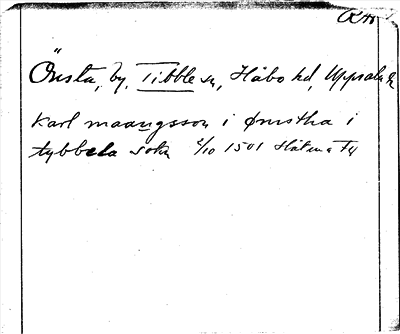 Önsta, by, Tibble sn, Håbo hd, Uppsala
Karl maangsson i ømstha i
tybbela sokn 2/10 1501 Hätuna